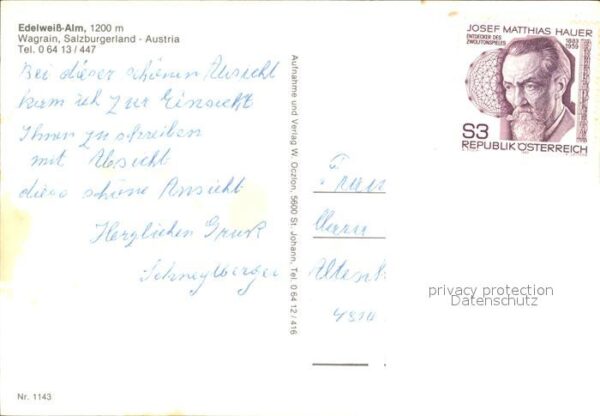 Edelweiß-Alm, 1200 m
Wagrain, Salzburgerland - Austria
Tel. 0 64 13 / 447
Bei dieser schönen Absicht
kam ich zur Einsicht
Ihnen zu schreiben
mit Absicht
diese schöne Ansicht
Herzlichen Gruß
Nr. 1143
Aufnahme und Verlag W. Oczlon, 5600 St. Johann, Tel. 0 64 12 / 416
JOSEF MATTHIAS HAUER
ENTDECKER DES
ZWÖLFTONSPIELES
1883
1959
S3
REPUBLIK ÖSTERREICH
Frau
4810
privacy protection
Datenschutz